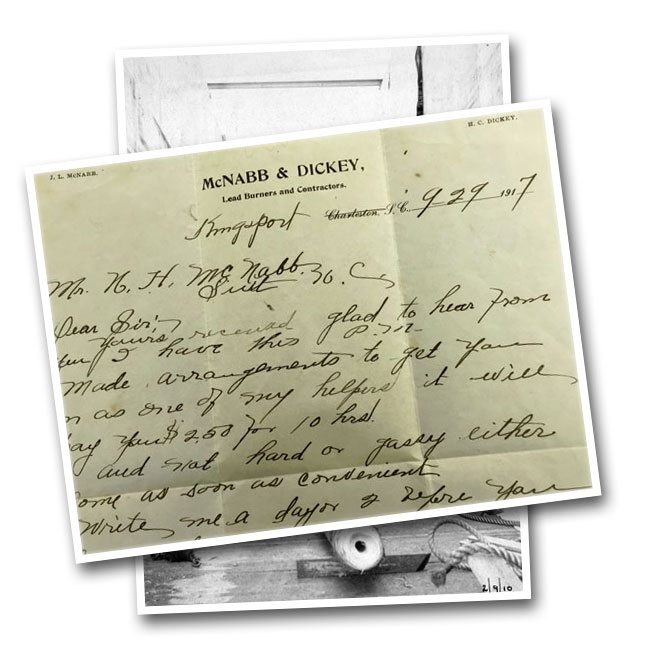 J. L. McNABB.
H. C. DICKEY.
McNABB & DICKEY,
Lead Burners and Contractors.
Kingsport Charleston, S. C. 9-29 1917
Mr. N. H. McNabb.
N. C.
Dear Sir:
Yours received glad to hear from
I have this P. M.
Made arrangements to get you
as one of my helpers it will
pay you $2.50 for 10 hrs.
and not hard or gassy either
Come as soon as convenient
Write me a day or 2 before you
2/9/10